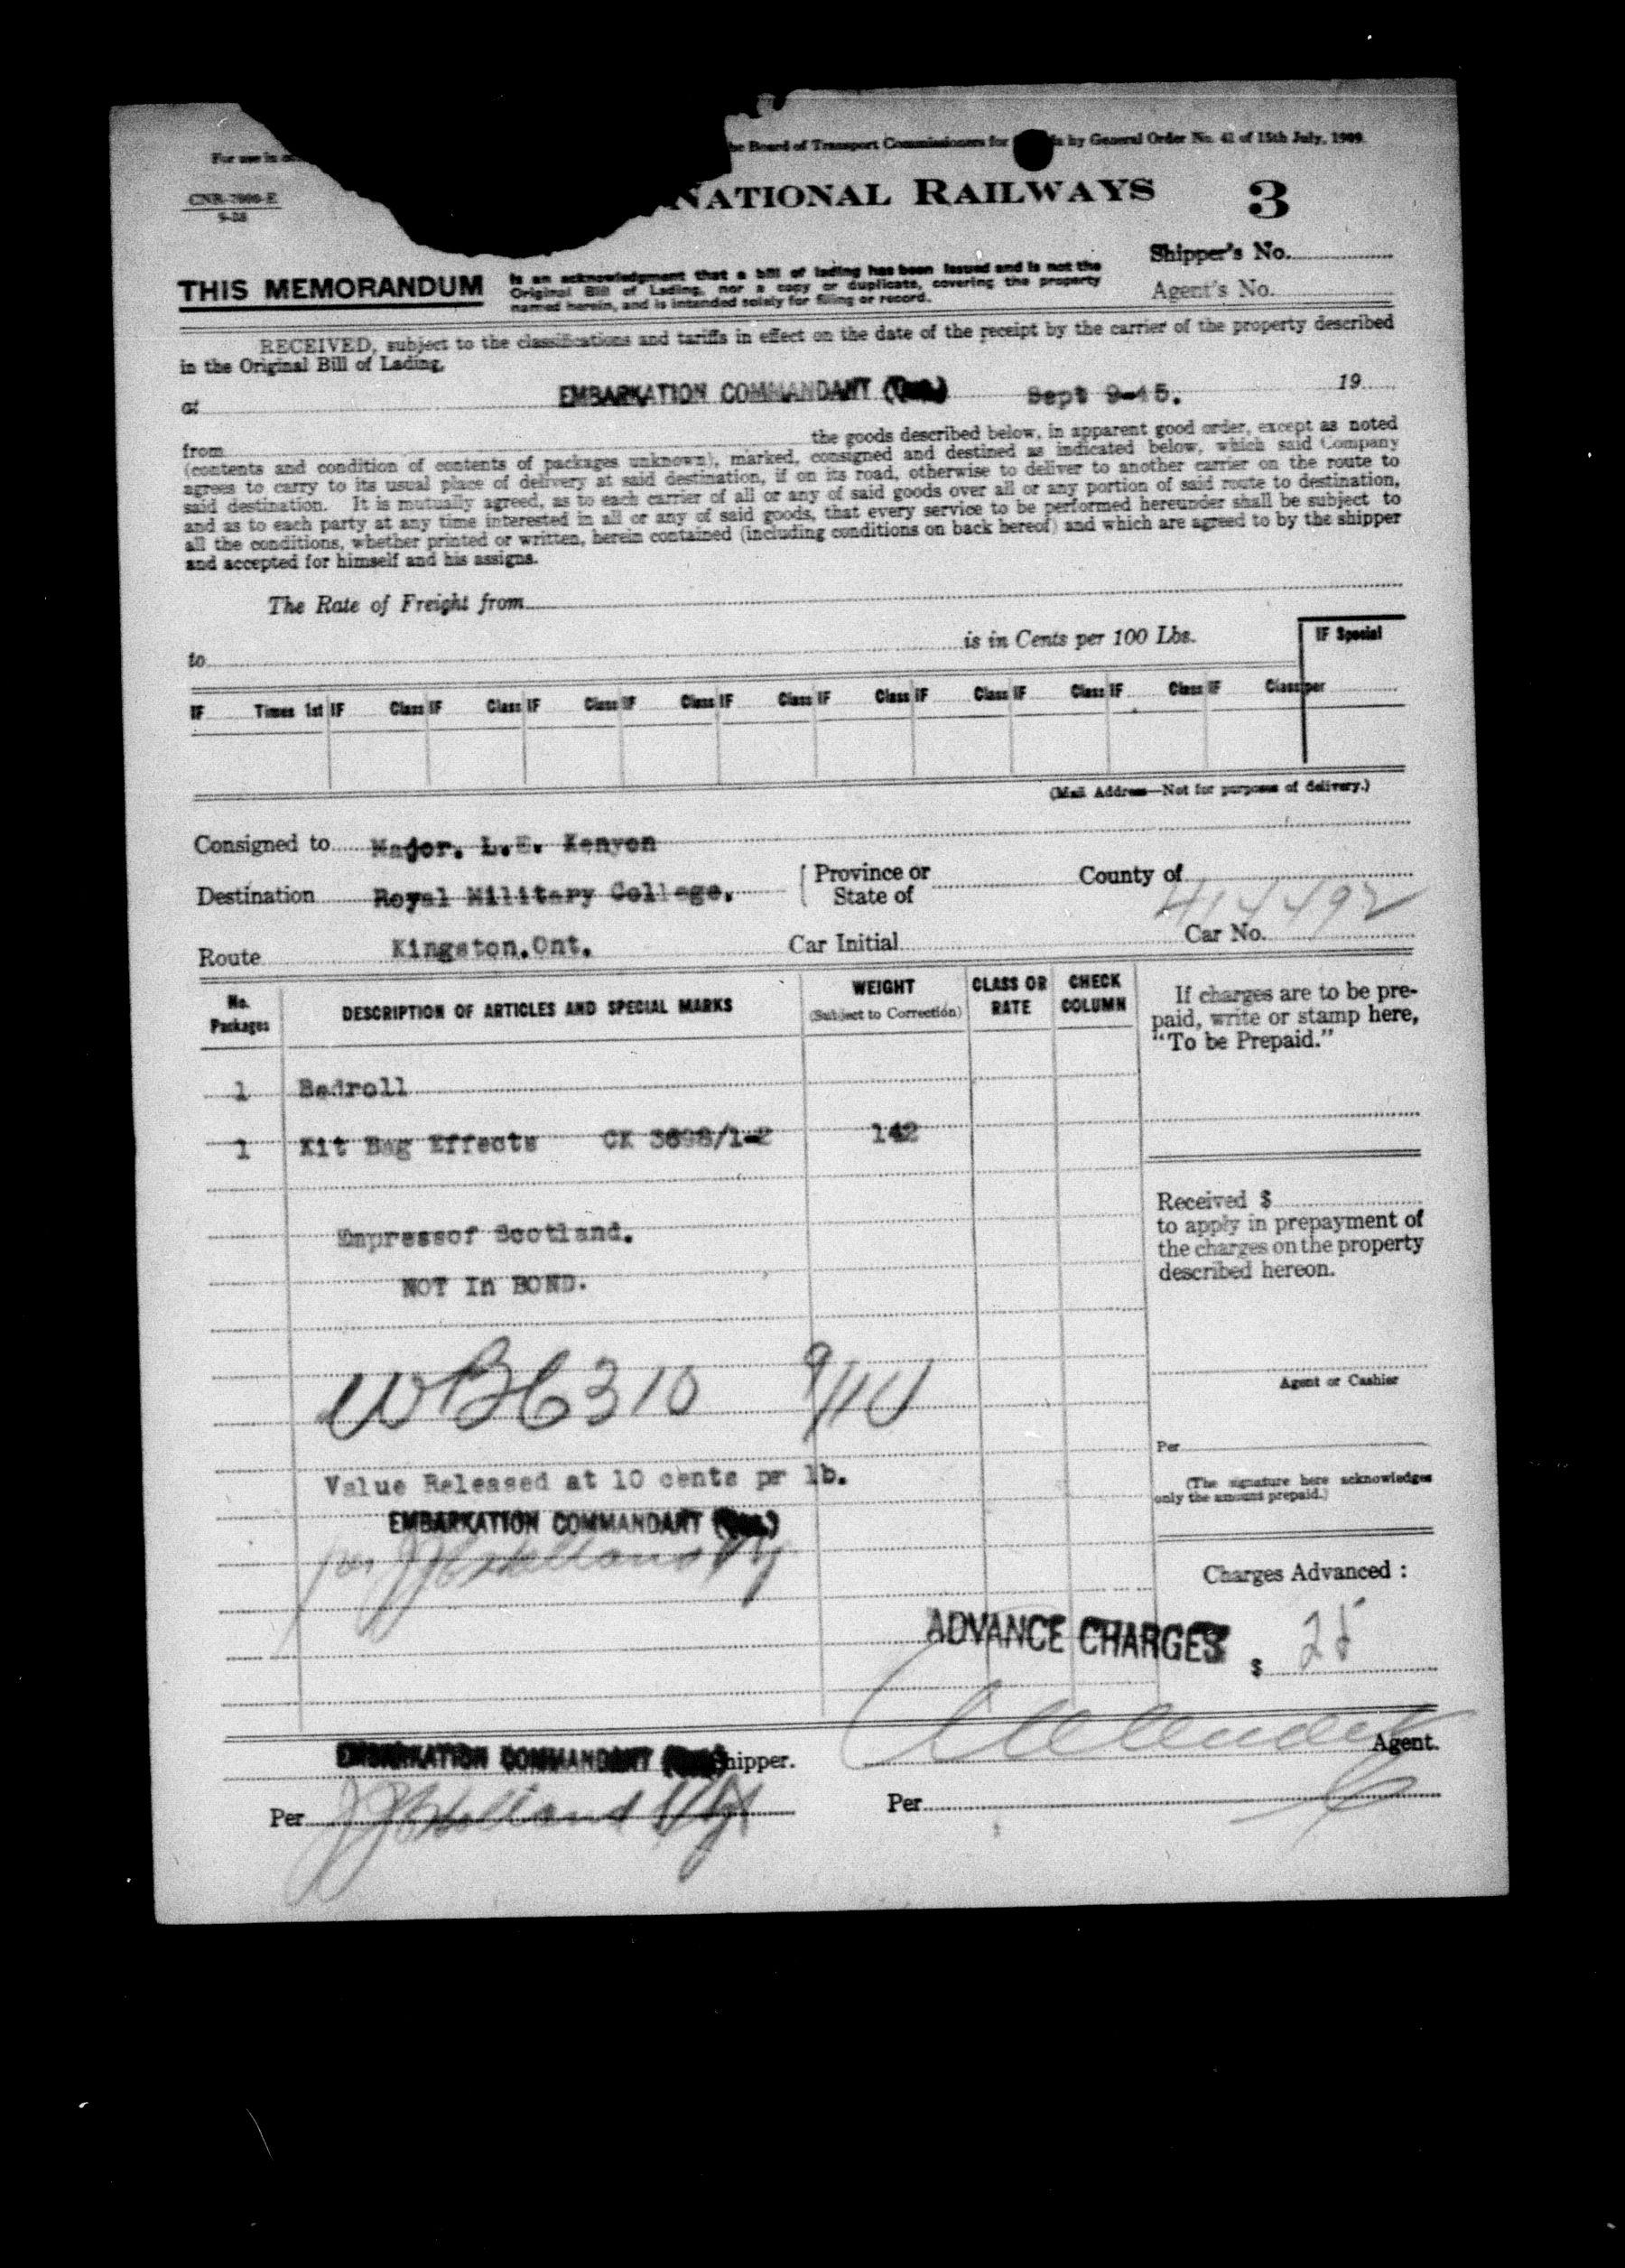 For use in
he Board of Transport Commissioners for by General Order No. 41 of 15th July, 1909
CNR-7000-E
9-38
NATIONAL RAILWAYS 3
Shipper's No.
Agent's No.
THIS MEMORANDUM is an acknowledgment that a bill of lading has been issued and is not the
Original Bill of Lading, nor a copy or duplicate, covering the property
named herein, and is intended solely for filing or record.
RECEIVED, subject to the classifications and tariffs in effect on the date of the receipt by the carrier of the property described
in the Original Bill of Lading,
at EMBARKATION COMMANDANT Sept 9-45. 19
from the goods described below, in apparent good order, except as noted
(contents and condition of contents of packages unknown), marked, consigned and destined as indicated below, which said Company
agrees to carry to its usual place of delivery at said destination, if on its road, otherwise to deliver to another carrier on the route to
said destination. It is mutually agreed, as to each carrier of all or any of said goods over all or any portion of said route to destination,
and as to each party at any time interested in all or any of said goods, that every service to be performed hereunder shall be subject to
all the conditions, whether printed or written, herein contained (including conditions on back hereof) and which are agreed to by the shipper
and accepted for himself and his assigns.
The Rate of Freight from
to is in Cents per 100 Lbs.
IF Special
IF Times 1st IF Class IF Class IF Class IF Class IF Class IF Class IF Class IF Class IF Class IF Class per
(Mail Address—Not for purposes of delivery.)
Consigned to Major. L.E. Kenyon
Destination Royal Military College. Province or State of County of
414492
Route Kingston.Ont. Car Initial Car No.
No. Packages DESCRIPTION OF ARTICLES AND SPECIAL MARKS WEIGHT (Subject to Correction) CLASS OR RATE CHECK COLUMN
If charges are to be pre-
paid, write or stamp here,
"To be Prepaid."
1 Bedroll
1 Kit Bag Effects CK 3698/1-2 142
Received $
to apply in prepayment of
the charges on the property
described hereon.
Empressof Scotland.
NOT In BOND.
WB6310
Agent or Cashier
Per
(The signature here acknowledges
only the amount prepaid.)
Value Released at 10 cents pr lb.
EMBARKATION COMMANDANT
Charges Advanced :
ADVANCE CHARGES $ 25
EMBARKATION COMMANDANT hipper.
Agent.
Per
Per